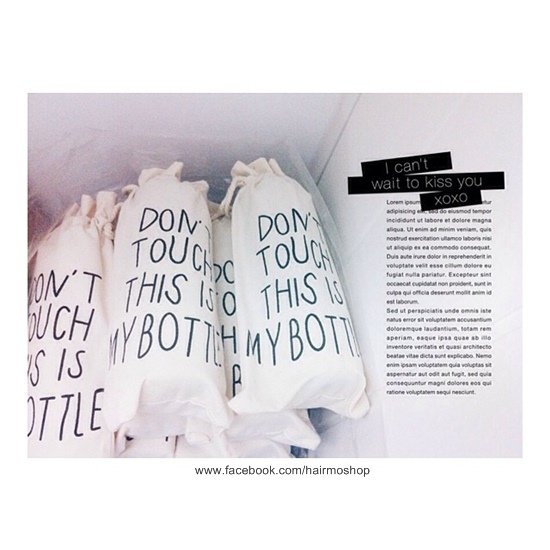 DON'T
TOUCH
IS IS
OTTLE
DON'T
TOUCH
THIS IS
MY BOTTLE
DON'T
TOUCH
THIS IS
MY BOTTLE
I can't
wait to kiss you
xoxo
Lorem ipsum
adipisicing elit, sed do eiusmod tempor
incididunt ut labore et dolore magna
aliqua. Ut enim ad minim veniam, quis
nostrud exercitation ullamco laboris nisi
ut aliquip ex ea commodo consequat.
Duis aute irure dolor in reprehenderit in
voluptate velit esse cillum dolore eu
fugiat nulla pariatur. Excepteur sint
occaecat cupidatat non proident, sunt in
culpa qui officia deserunt mollit anim id
est laborum.
Sed ut perspiciatis unde omnis iste
natus error sit voluptatem accusantium
doloremque laudantium, totam rem
aperiam, eaque ipsa quae ab illo
inventore veritatis et quasi architecto
beatae vitae dicta sunt explicabo. Nemo
enim ipsam voluptatem quia voluptas sit
aspernatur aut odit aut fugit, sed quia
consequuntur magni dolores eos qui
ratione voluptatem sequi nesciunt.
www.facebook.com/hairmoshop